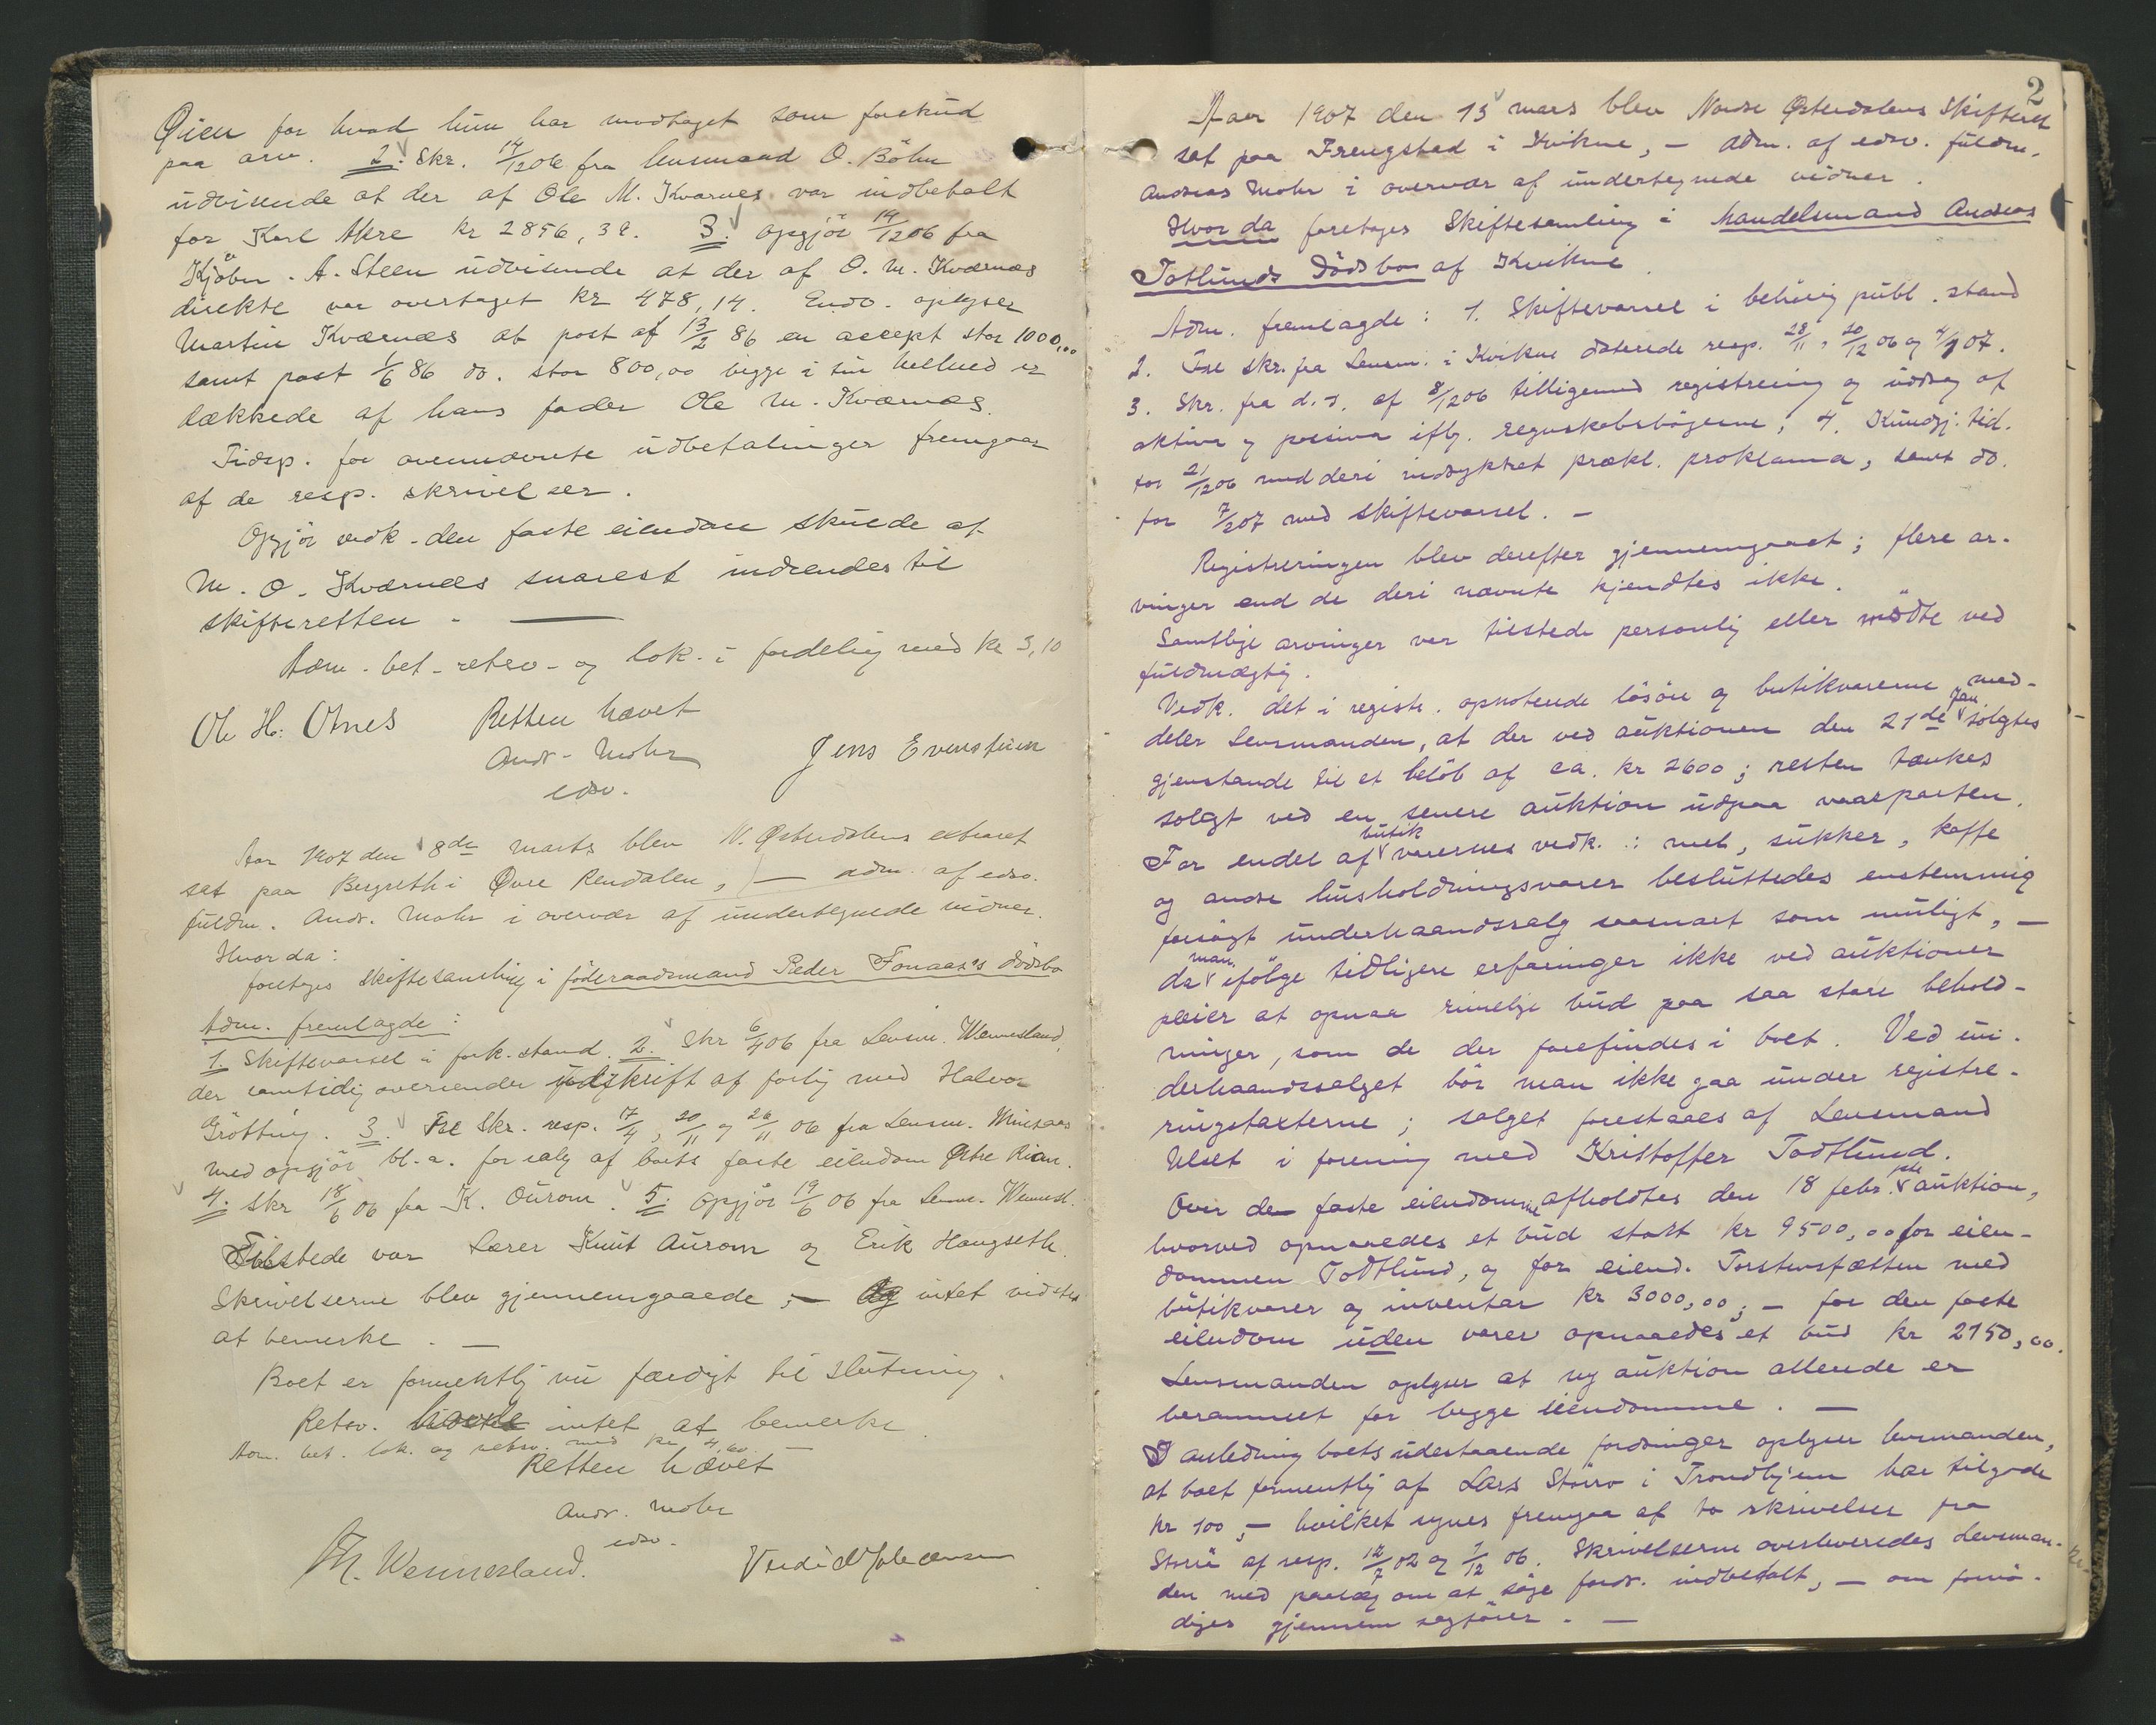 Øien for hvad hun har modtaget som forskud
paa arv. 2. Skr. 14/12 06 fra lensmand O. Böhn
udvisende at der af Ole M. Kværnes var indbetalt
for Karl Akre kr 2856,38. 3. opgjör 14/12 06 fra
Kjöbm. A. Steen udvisende at der af O. M. Kværnæs
direkte var overtaget kr 478,14. Endv. oplyser
Martin Kværnæs at post af 13/2 86 en accept stor 1000,00
samt post 1/6 86 do. stor 800,00 begge i sin helhed er
dækkede af hans fader Ole M. Kværnæs.
Tidsp. for ovennævnte udbetalinger fremgaar
af de resp. skrivelser.
Opgjör vedk. den faste eiendom skulde af
M. O. Kværnæs snarest indsendes til
skifteretten. —
Adm. bet. retsv. og lok. i fordelig med kr 3,10
Retten hævet
Ole H. Otnes
Andr. Mohr
edsv.
Jens Evenstuen
Aar 1907 den 8de marts blev N. Østerdalens extraret
sat paa Bergseth i Øvre Rendalen, — adm. af edsv.
fuldm. Andr. Mohr i overvær af undertegnede vidner.
Hvor da:
foretoges skiftesamling i föderaadsmand Peder Fonaas's dödsbo
Adm. fremlagde:
1. Skiftevarsel i fork. stand. 2. Skr 6/4 06 fra Lensm. Wennesland,
der samtidig oversender udskrift af forlig med Halvor
Grötting. 3. Tre Skr. resp. 17/4, 20/11 og 26/11 06 fra Lensm. Minsaas
med opgjör bl. a. for salg af boets faste eiendom Østre Rian.
4. Skr 18/6 06 fra K. Ourom. 5. Opgjör 19/6 06 fra Lensm. Wennesl.
Tilstede var Lærer Knut Aurom og Erik Haugseth.
Skrivelserne blev gjennemgaaede; — intet vidstes
at bemerke. —
Boet er formentlig nu færdigt til slutning.
Retsv. havde intet at bemerke
Adm. bet. lok. og retsv. med kr 4,60. —
Retten hævet
Andr. Mohr
edsv.
Th. Wennesland.
2
Aar 1907 den 13 mars blev Nordre Østerdalens Skifteret
sat paa Frengstad i Kvikne, — adm. af edsv. fuldm.
Andreas Mohr i overvær af undertegnede vidner.
Hvor da foretoges Skiftesamling i handelsmand Andreas
Totlunds Dödsbo af Kvikne.
Adm. fremlagde: 1. Skiftevarsel i behörig publ. stand
2. Tre skr. fra Lensm. i Kvikne daterede resp. 28/11, 20/12 06 og 4/1 07.
3. Skr. fra d. s. af 8/12 06 tilligemed registrering og uddrag af
aktiva og passiva iflg. regnskabsbögerne; 4. Kundgj. tid.
for 21/12 06 med deri indrykket prækl. proklama, samt do.
for 7/2 07 med skiftevarsel. —
Registreringen blev derefter gjennemgaaet; flere ar-
vinger end de deri nævnte kjendtes ikke.
Samtlige arvinger var tilstede personlig eller mödte ved
fuldmægtig.
Vedk. det i registr. opnoterede lösöre og butikvarerne med-
deler Lensmanden, at der ved auktionen den 21de jan solgtes
gjenstande til et belöb af ca. kr 2600; resten tænkes
solgt ved en senere auktion udpaa vaarparten.
For endel af butik varernes vedk. : mel, sukker, kaffe
og andre husholdningsvarer besluttedes enstemmig
forsögt underhaandssalg saasnart som muligt, —
da man ifölge tidligere erfaringer ikke ved auktioner
pleier at opnaa rimelige bud paa saa store behold-
ninger, som de der forefindes i boet. Ved un-
derhaandssalget bör man ikke gaa under registre-
ringstaxterne; salget forestaaes af Lensmand
Ulset i forening med Kristoffer Todtlund.
Over de faste eiendomme afholdtes den 18 febr. 1ste auktion,
hvorved opnaaedes et bud stort kr 9500,00 for eien-
dommen Todtlund, og for eiend. Torstensfætten med
butikvarer og inventar kr 3000,00; — for den faste
eiendom uden varer opnaaedes et bud kr 2150,00.
Lensmanden oplyser at ny auktion allerede er
berammet for begge eiendomme. —
I anledning boets udestaaende fordringer oplyser lensmanden,
at boet formentlig af Lars Störro i Trondhjem har tilgode
kr 100, — hvilket synes fremgaa af to skrivelser fra
Störro af resp. 12/7 02 og 1/12 06. Skrivelserne overleveredes Lensman-
den med paalæg om at söge fordr. indbetalt, — om fornö-
diges gjennem sagförer. —